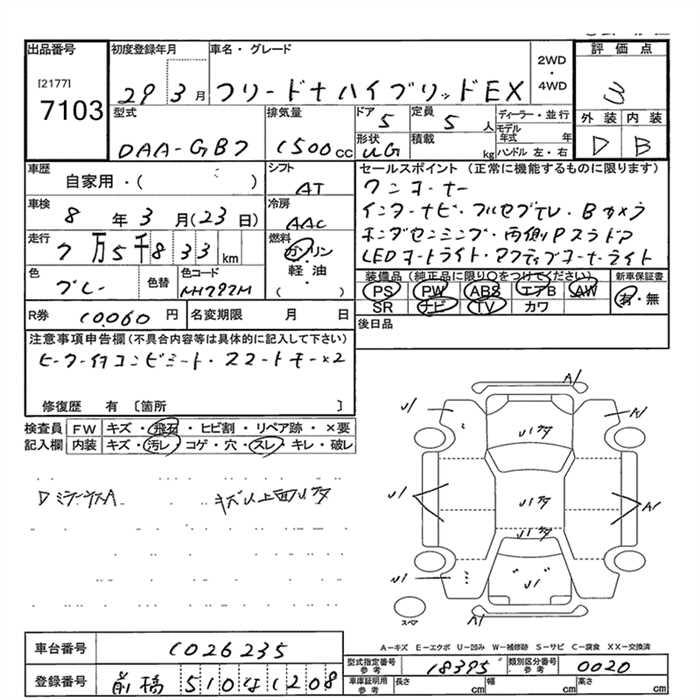 出品番号
[2177]
7103
初度登録年月
29 3月
車名・グレード
フリード+ ハイブリッドEX
2WD
・
4WD
評価点
3
型式
DAA-GB7
排気量
1500cc
ドア
5
定員
5人
ディーラー・並行
モデル年式 年
ハンドル 左・右
形状
UG
積載
kg
外装 内装
D B
車歴
自家用・( )
シフト
AT
セールスポイント (正常に機能するものに限ります)
ワンオーナー
インターナビ・フルセグTV・Bカメラ
ホンダセンシング・両側Pスラドア
LEDオートライト・アクティブコーナーライト
車検
8年3月(23日)
冷房
AAC
走行
7万5千833km
燃料
ガソリン
・
軽・油
( )
色
グレー
色替
色コード
NH782M
装備品(純正品に限り○をつけてください)
PS PW ABS エアB AW
SR ナビ TV カワ
新車保証書
有・無
R券 10060円
名変期限 月 日
後日品
注意事項申告欄(不具合内容等は具体的に記入して下さい)
ヒーター付コンビシート・スマートキー×2
修復歴 有 〔箇所 〕
検査員記入欄
FW キズ・飛石・ヒビ割・リペア跡・×要
内装 キズ・汚レ・コゲ・穴・スレ・キレ・破レ
DミラーキズA キズ以上面リタ
A1
U1
U1タ
A1
U1
U1タ
A1
U1タ
U1
U1
A1
スペア
A-キズ E-エクボ U-凹み W-補修跡 S-サビ C-腐食 XX-交換済
車台番号 1026235
登録番号 前橋 510な1208
型式指定番号 参考 18395
類別区分番号 参考 0020
車庫証明用 参考 長さ cm 幅 cm 高さ cm